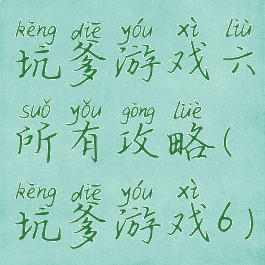 kēng diē yóu xì liù
坑爹游戏六
suǒ yǒu gōng lüè
所有攻略(
kēng diē yóu xì
坑爹游戏6)